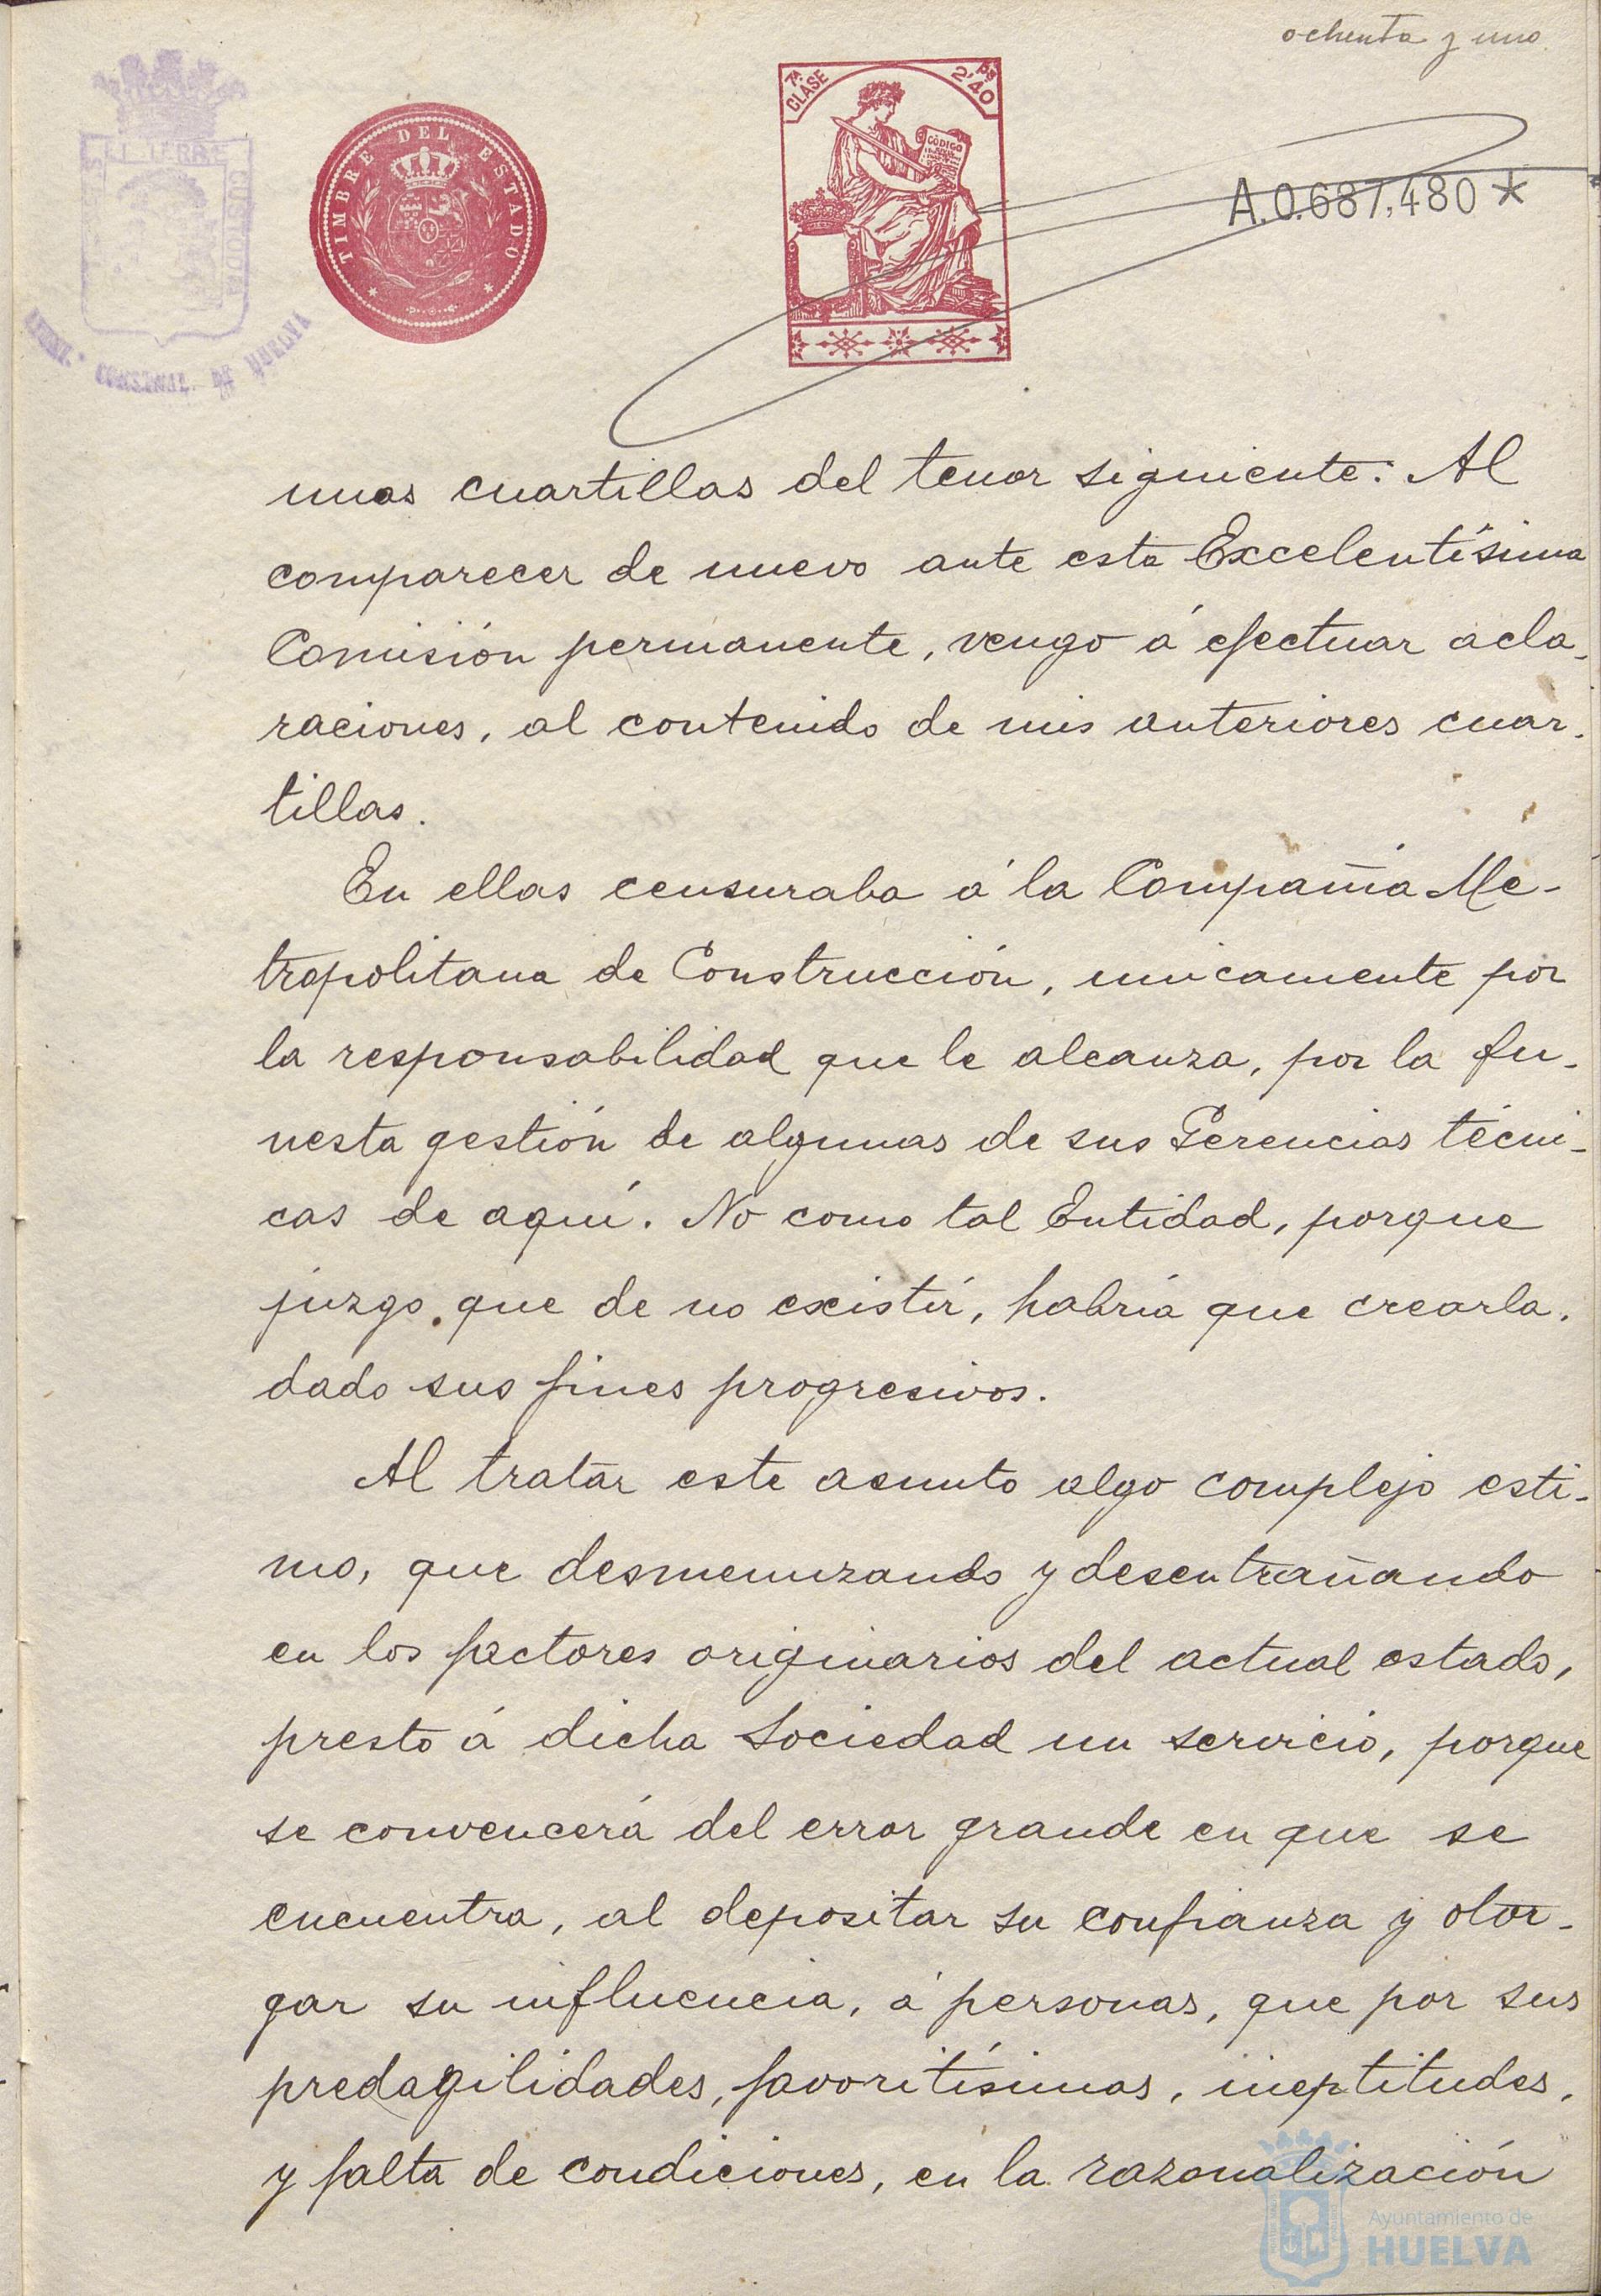 ochenta y uno
TIMBRE DEL ESTADO
7ª CLASE
2'40 Ps
CÓDIGO
A.0.687,480*
CUSTODIA
COMUNAL DE HUELVA
unas cuartillas del tenor siguiente: Al
comparecer de nuevo ante esta Excelentísima
Comisión permanente, vengo á efectuar acla-
raciones, al contenido de mis anteriores cuar-
tillas.
En ellas censuraba á la Compañía Me-
tropolitana de Construcción, unicamente por
la responsabilidad que le alcanza, por la fu-
nesta gestión de algunas de sus Gerencias técni-
cas de aquí. No como tal Entidad, porque
juzgo que de no existír, habría que crearla,
dado sus fines progresivos.
Al tratar este asunto algo complejo esti-
mo, que desmenuzando y desentrañando
en los factores originarios del actual estado,
presto á dicha Sociedad un servicio, porque
se convencerá del error grande en que se
encuentra, al depositar su confianza y otor-
gar su influencia, á personas, que por sus
predagilidades, favoritísimas, ineptitudes,
y falta de condiciones, en la razonalización
Ayuntamiento de
HUELVA